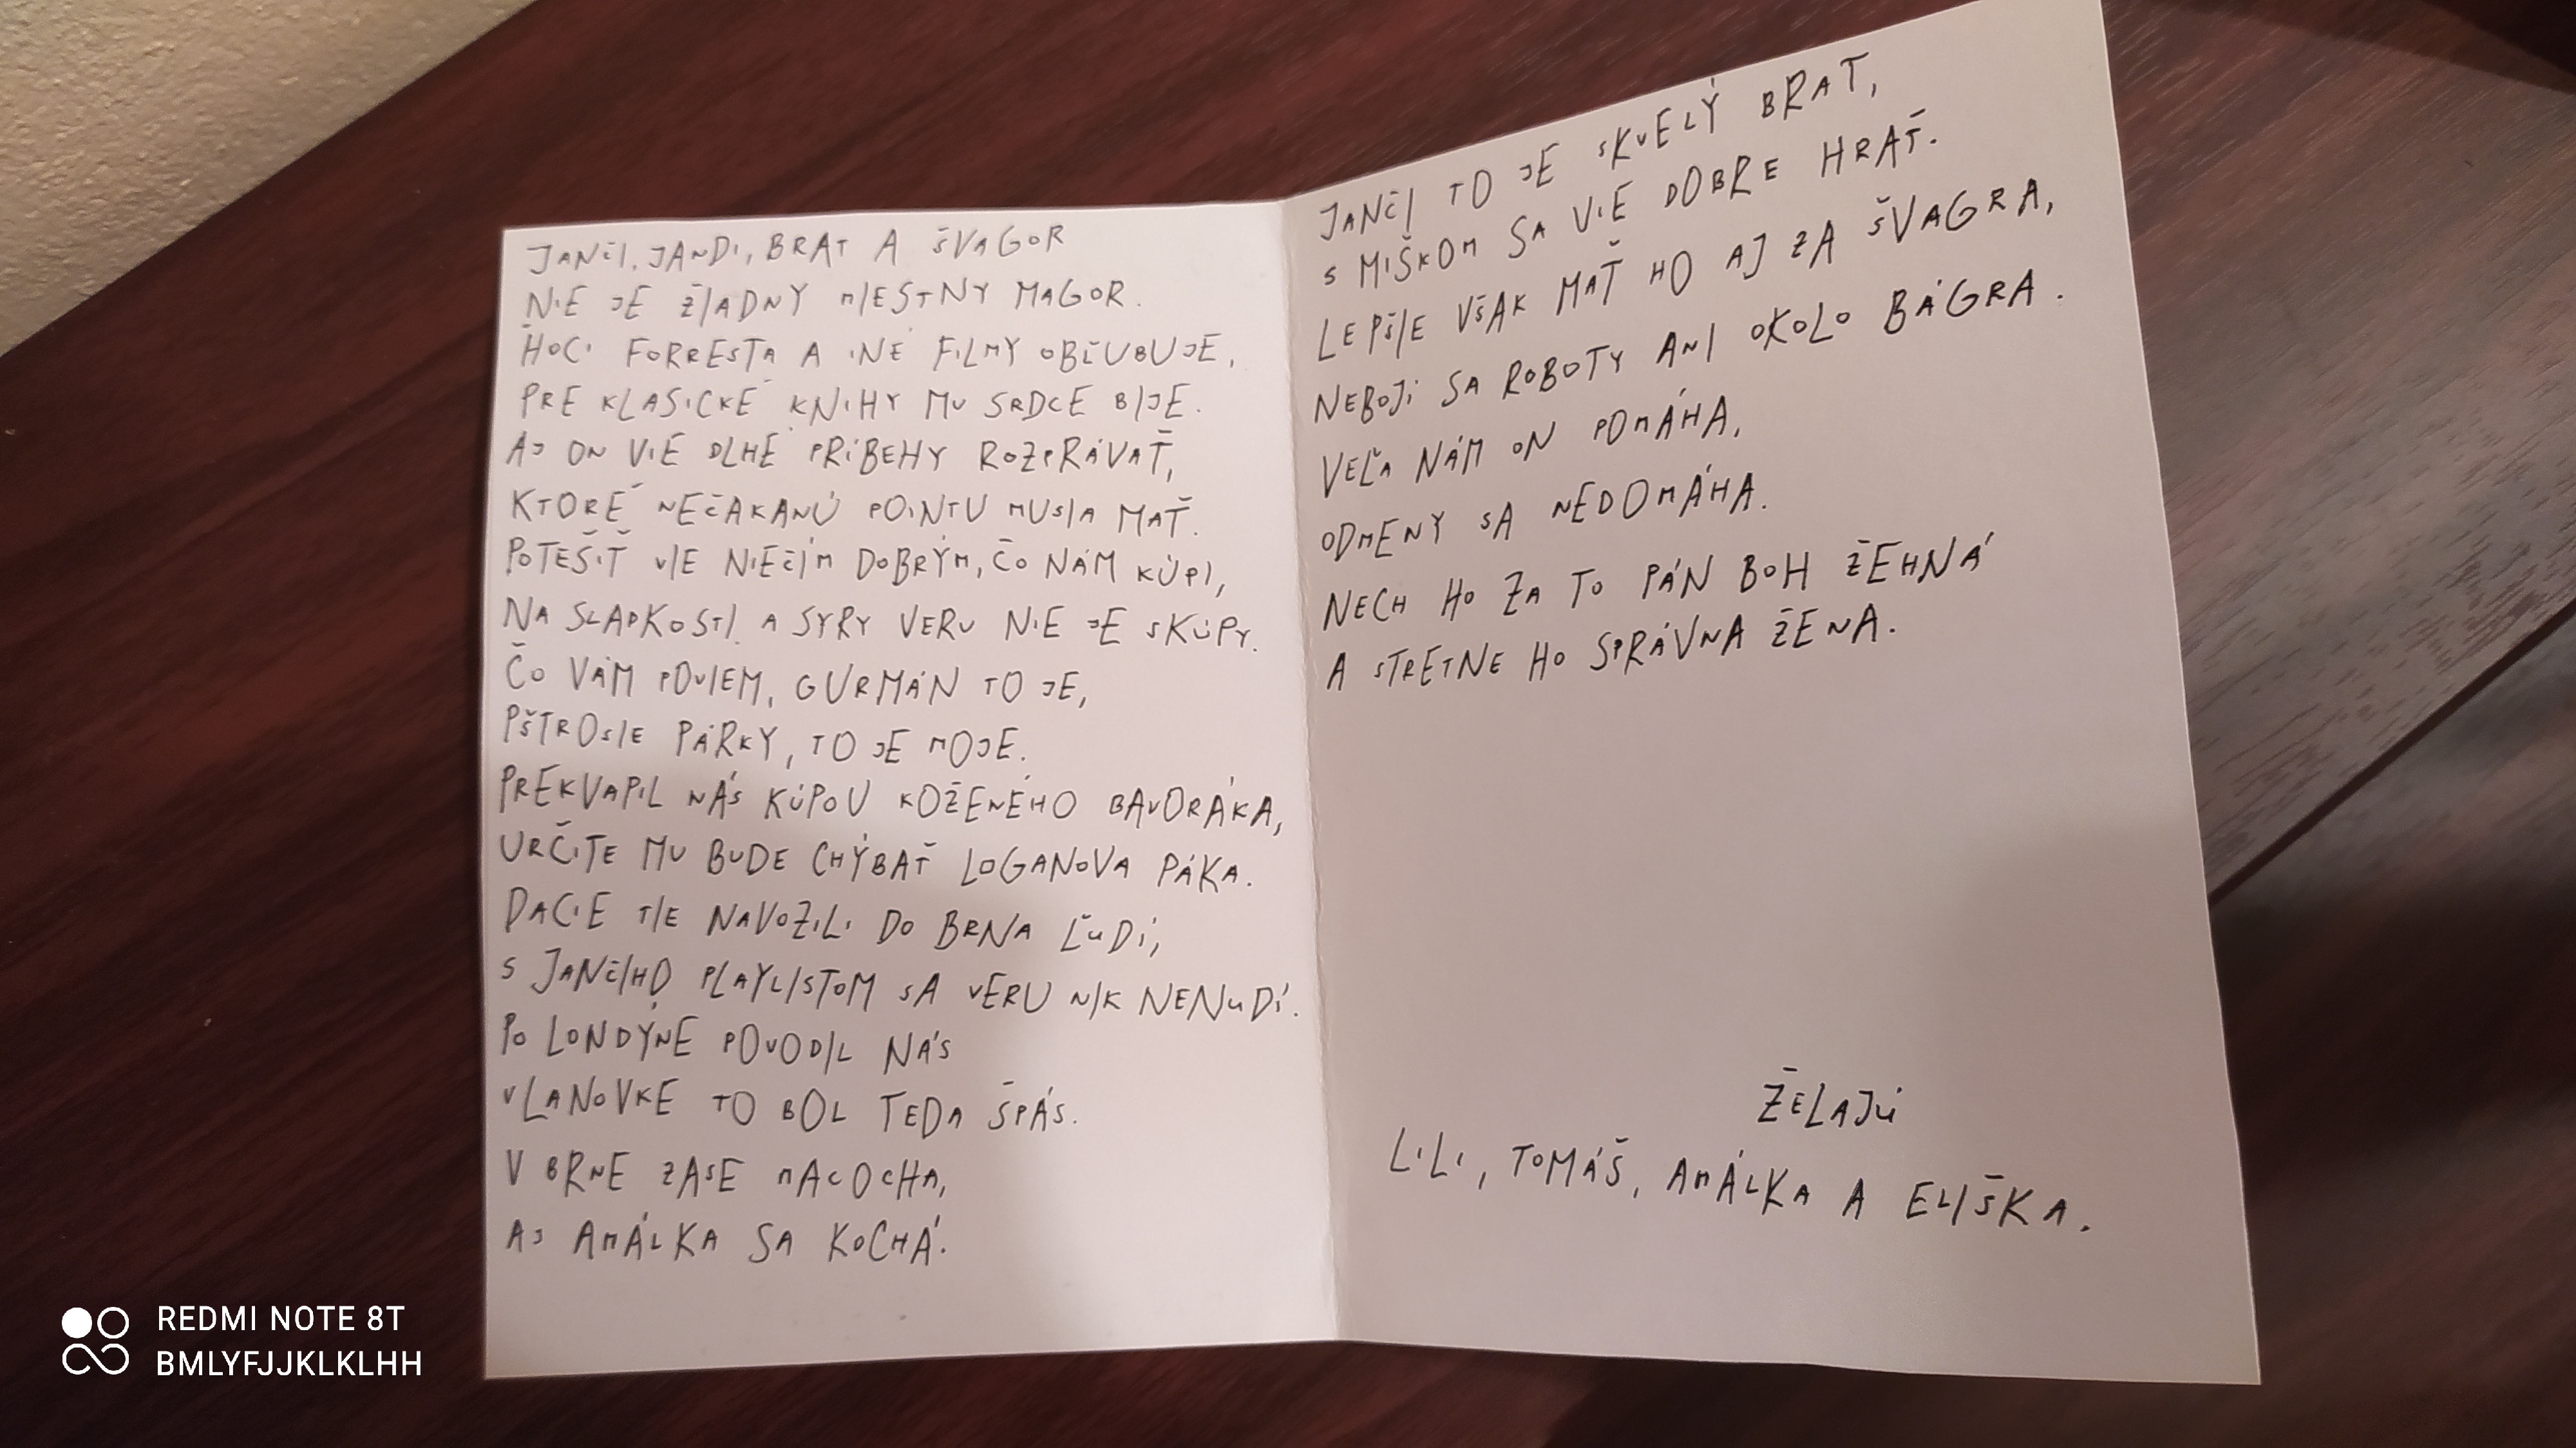 JANČI, JANDI, BRAT A ŠVAGOR
NIE JE ŽIADNY MIESTNY MAGOR.
HOCI FORRESTA A INÉ FILMY OBĽUBUJE,
PRE KLASICKÉ KNIHY MU SRDCE BIJE.
AJ ON VIE DLHÉ PRÍBEHY ROZPRÁVAŤ,
KTORÉ NEČAKANÚ POINTU MUSIA MAŤ.
POTEŠIŤ VIE NIEČÍM DOBRÝM, ČO NÁM KÚPI,
NA SLADKOSTI A SYRY VERU NIE JE SKÚPY.
ČO VÁM POVIEM, GURMÁN TO JE,
PŠTROSIE PÁRKY, TO JE MOJE.
PREKVAPIL NÁS KÚPOU KOŽENÉHO BAVORÁKA,
URČITE MU BUDE CHÝBAŤ LOGANOVA PÁKA.
DACIE TIE NAVOZILI DO BRNA ĽUDÍ,
S JANČIHO PLAYLISTOM SA VERU NIK NENUDÍ.
PO LONDÝNE POVODIL NÁS
VLANOVKE TO BOL TEDA ŠPÁS.
V BRNE ZASE MACOCHA,
AJ AMÁLKA SA KOCHÁ.
JANČI TO JE SKVELÝ BRAT,
S MIŠKOM SA VIE DOBRE HRAŤ.
LEPŠIE VŠAK MAŤ HO AJ ZA ŠVAGRA,
NEBOJÍ SA ROBOTY ANI OKOLO BÁGRA.
VEĽA NÁM ON POMÁHA,
ODMENY SA NEDOMÁHA.
NECH HO ZA TO PÁN BOH ŽEHNÁ
A STRETNE HO SPRÁVNA ŽENA.
ŽELAJÚ
LILI, TOMÁŠ, AMÁLKA A ELIŠKA.
REDMI NOTE 8T
BMLYFJJKLKLHH